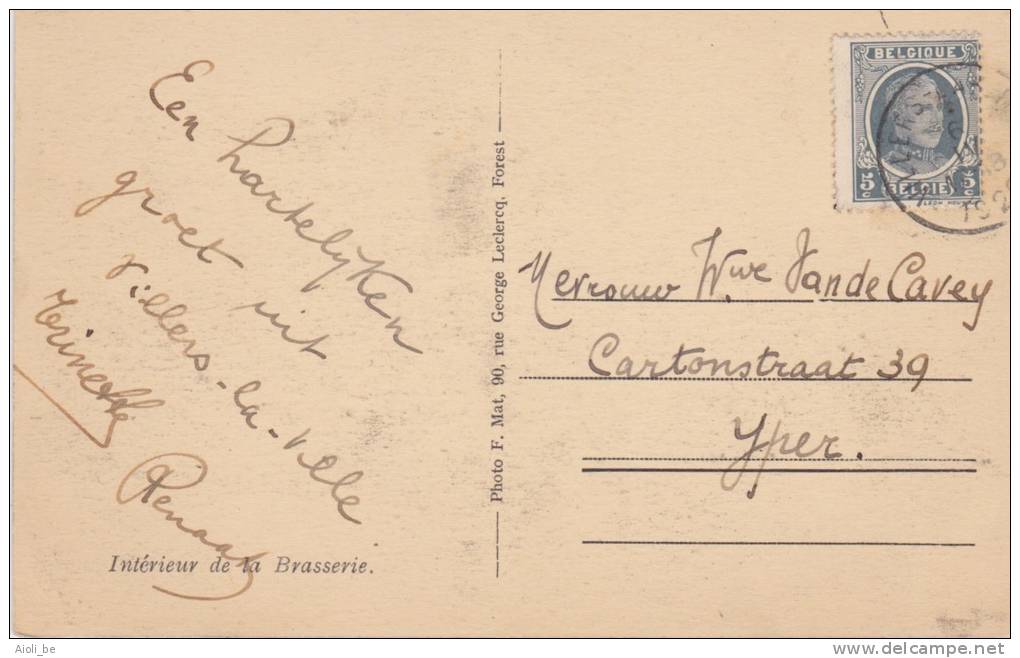 Een hartelijken
groet uit
Villers-la-Ville
Renaat
Intérieur de la Brasserie.
Photo F. Mat, 90, rue George Leclercq, Forest
BELGIQUE
5c 5c
BELGIE
Mevrouw Wwe Vande Cavey
Cartonstraat 39
Yper.
Aioli_be
delcampe.net